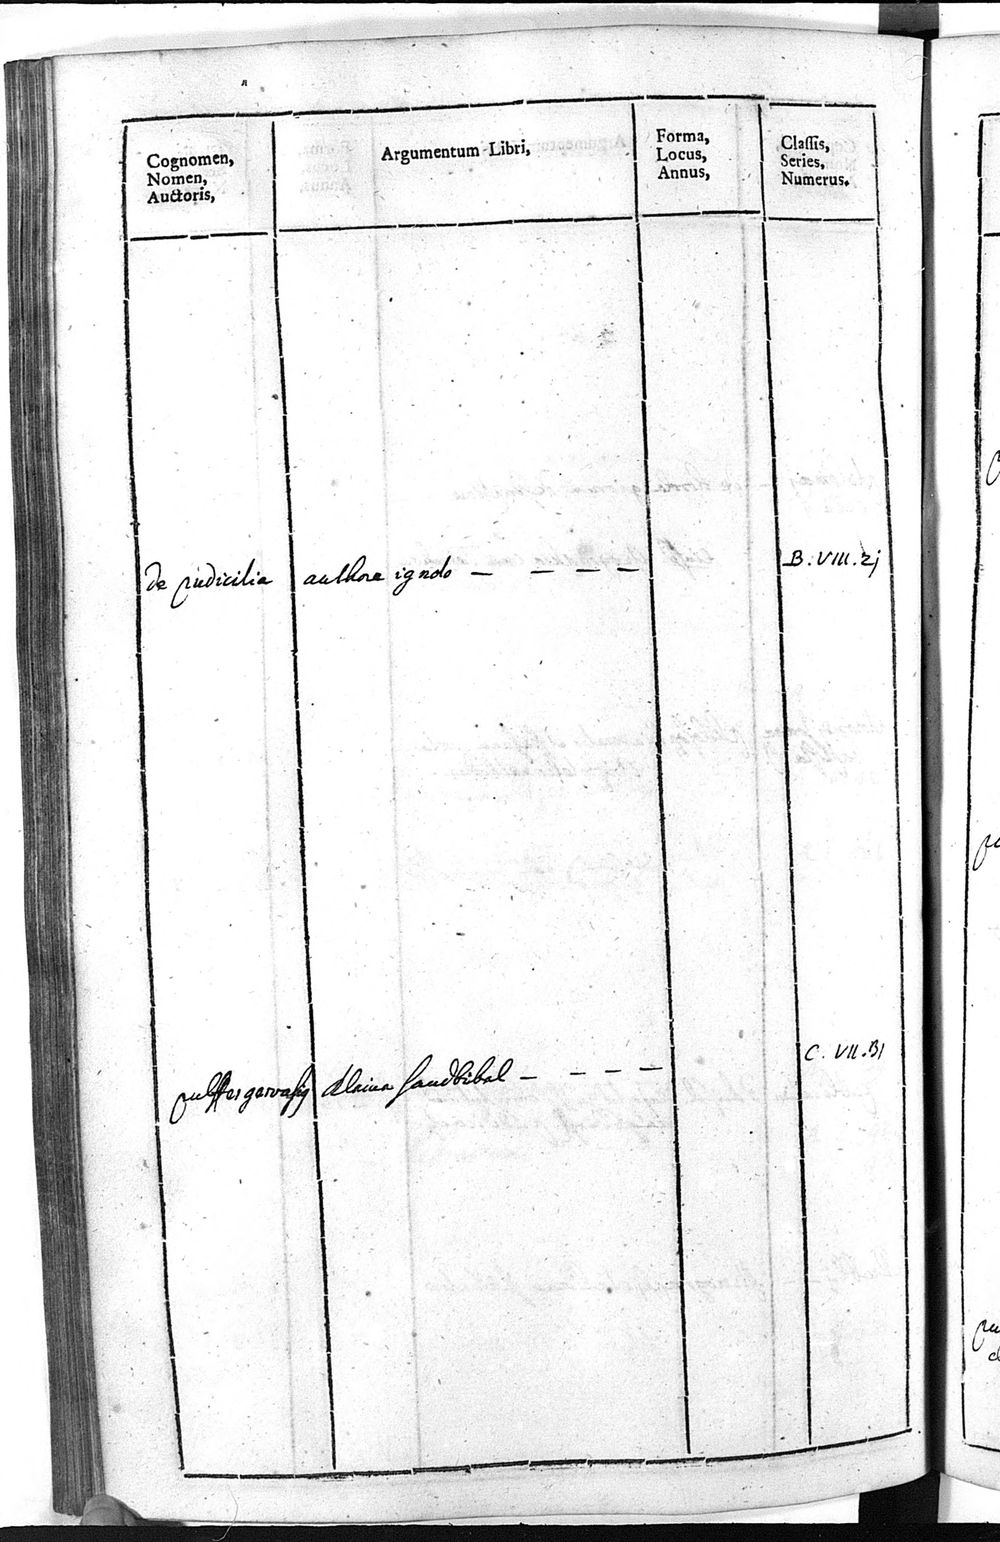 Cognomen,
Nomen,
Auctoris,
Argumentum Libri,
Forma,
Locus,
Annus,
Classis,
Series,
Numerus.
de pudicitia authore ignoto — — — — B. VIII. 2j
gervasij Kleine Handbibel — — — — C. VII. 31